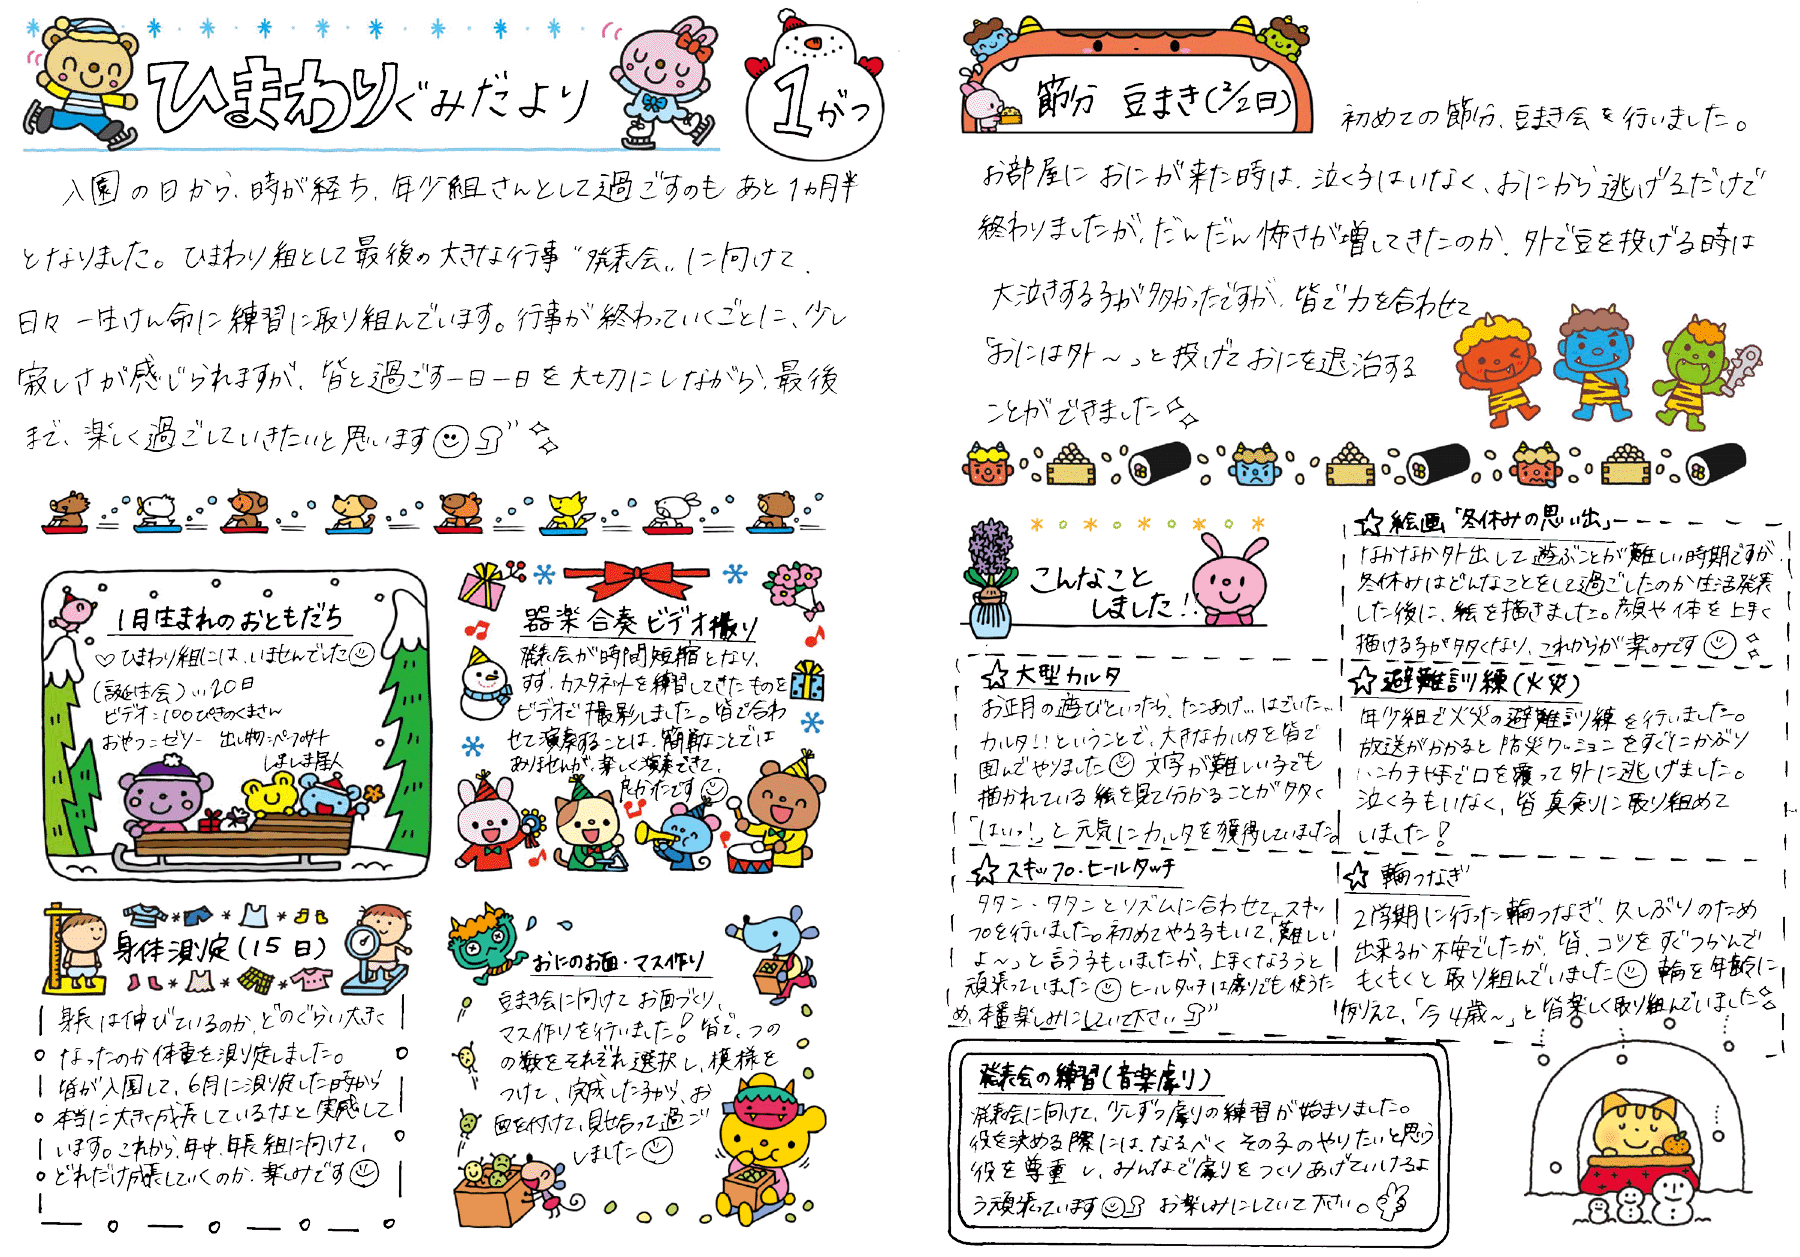 ひまわりぐみだより
1がつ
入園の日から、時が経ち、年少組さんとして過ごすのもあと1ヵ月半
となりました。ひまわり組として最後の大きな行事"発表会"に向けて、
日々一生けん命に練習に取り組んでいます。行事が終わっていくごとに、少し
寂しさが感じられますが、皆と過ごす一日一日を大切にしながら、最後
まで、楽しく過ごしていきたいと思います
1月生まれのおともだち
♡ひまわり組には、いませんでした
(誕生会)…20日
ビデオ:100ぴきのくまさん
おやつ:ゼリー 出し物:ペープサート
しましま星人
器楽合奏ビデオ撮り
発表会が時間短縮となり、
すず、カスタネットを練習してきたものを
ビデオで撮影しました。皆で合わ
せて演奏することは、簡単なことでは
ありませんが、楽しく演奏できて、
良かったです
身体測定(15日)
身長は伸びているのか、どのぐらい大きく
なったのか体重を測定しました。
皆が入園して、6月に測定した時から
本当に大きく成長しているなと実感して
います。これから、年中、年長組に向けて、
どれだけ成長していくのか、楽しみです
おにのお面・マス作り
豆まき会に向けてお面づくり、
マス作りを行いました!皆で、つの
の数をそれぞれ選択し、模様を
つけて、完成した子から、お
面を付けて、見せ合って過ご
しました
節分 豆まき(2/2日)
初めての節分、豆まき会を行いました。
お部屋におにが来た時は、泣く子はいなく、おにから逃げるだけで
終わりましたが、だんだん怖さが増してきたのか、外で豆を投げる時は
大泣きする子が多かったですが、皆で力を合わせて
「おには外～」と投げておにを退治する
ことができました
こんなこと
しました!!
☆絵画「冬休みの思い出」
なかなか外出して遊ぶことが難しい時期ですが
冬休みはどんなことをして過ごしたのか生活発表
した後に、絵を描きました。顔や体を上手く
描ける子が多くなり、これからが楽しみです
☆大型カルタ
お正月の遊びといったら、たこあげ…はごいた…
カルタ!!ということで、大きなカルタを皆で
囲んでやりました 文字が難しい子でも
描かれている絵を見て分かることが多く
「はいっ!」と元気にカルタを獲得していました。
☆避難訓練(火災)
年少組で火災の避難訓練を行いました。
放送がかかると防災クッションをすぐにかぶり
ハンカチや手で口を覆って外に逃げました。
泣く子もいなく、皆真剣に取り組めて
いました!
☆スキップ・ヒールタッチ
タタン・タタンとリズムに合わせて、スキッ
プを行いました。初めてやる子もいて、「難しい
よ～」と言う子もいましたが、上手くなろうと
頑張っていました ヒールタッチは劇りでも使うた
め、本番楽しみにしていて下さい
☆輪つなぎ
2学期に行った輪つなぎ、久しぶりのため
出来るか不安でしたが、皆、コツをすぐつかんで
もくもくと取り組んでいました 輪を年齢に
例えて、「今4歳～」と皆楽しく取り組んでいました
発表会の練習(音楽劇り)
発表会に向けて、少しずつ劇りの練習が始まりました。
役を決める際には、なるべくその子のやりたいと思う
役を尊重し、みんなで劇りをつくりあげていけるよ
う頑張っています お楽しみにしていて下さい。